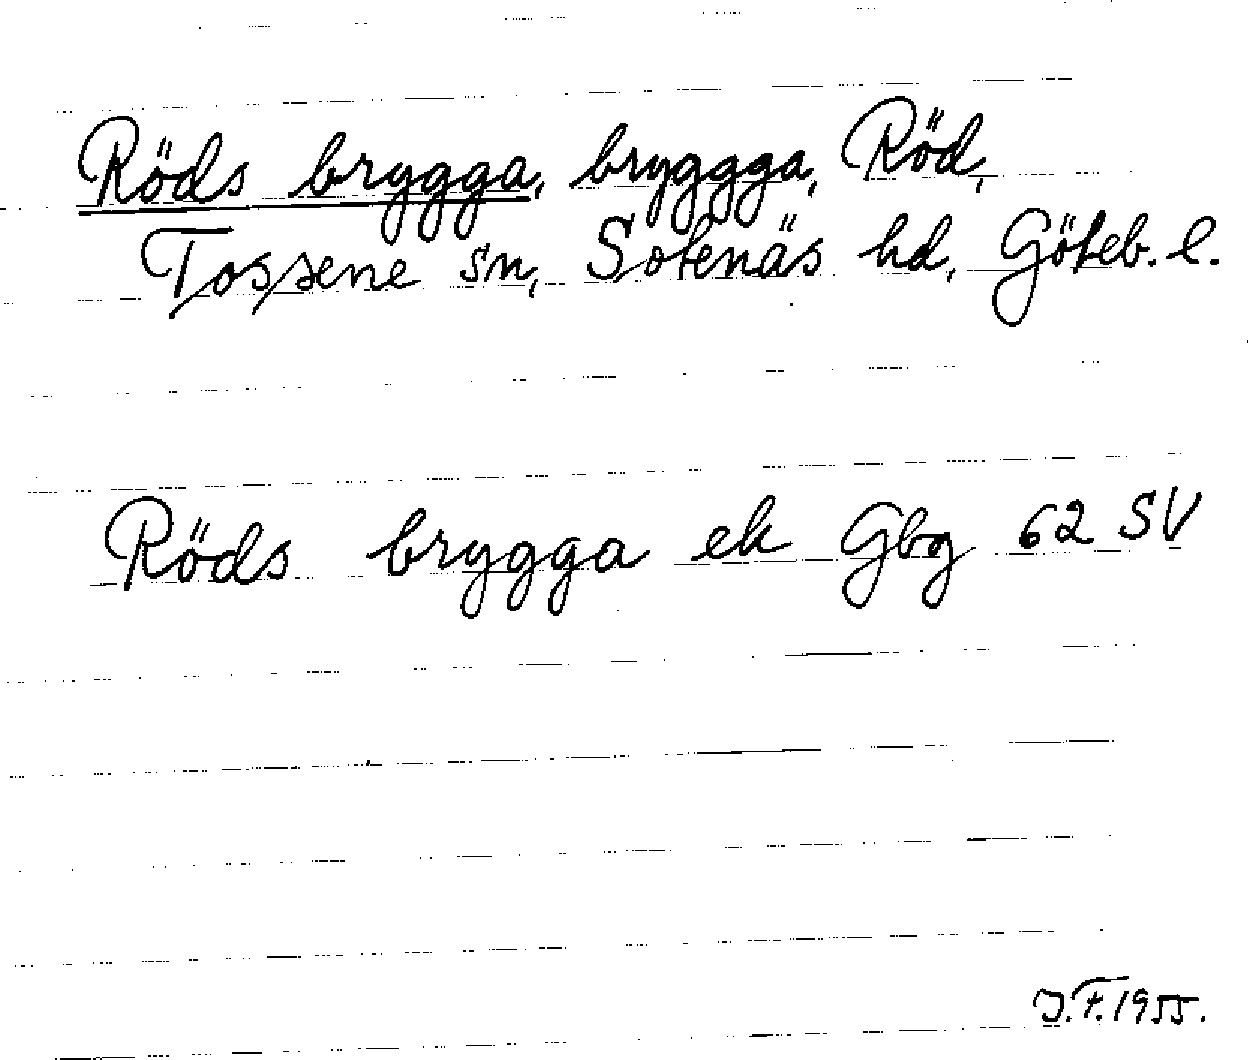 Röds brygga, bryggga, Röd,
Tossene sn, Sotenäs hd, Göteb. l.
Röds brygga ek Gbg 62 SV
J.F. 1955.